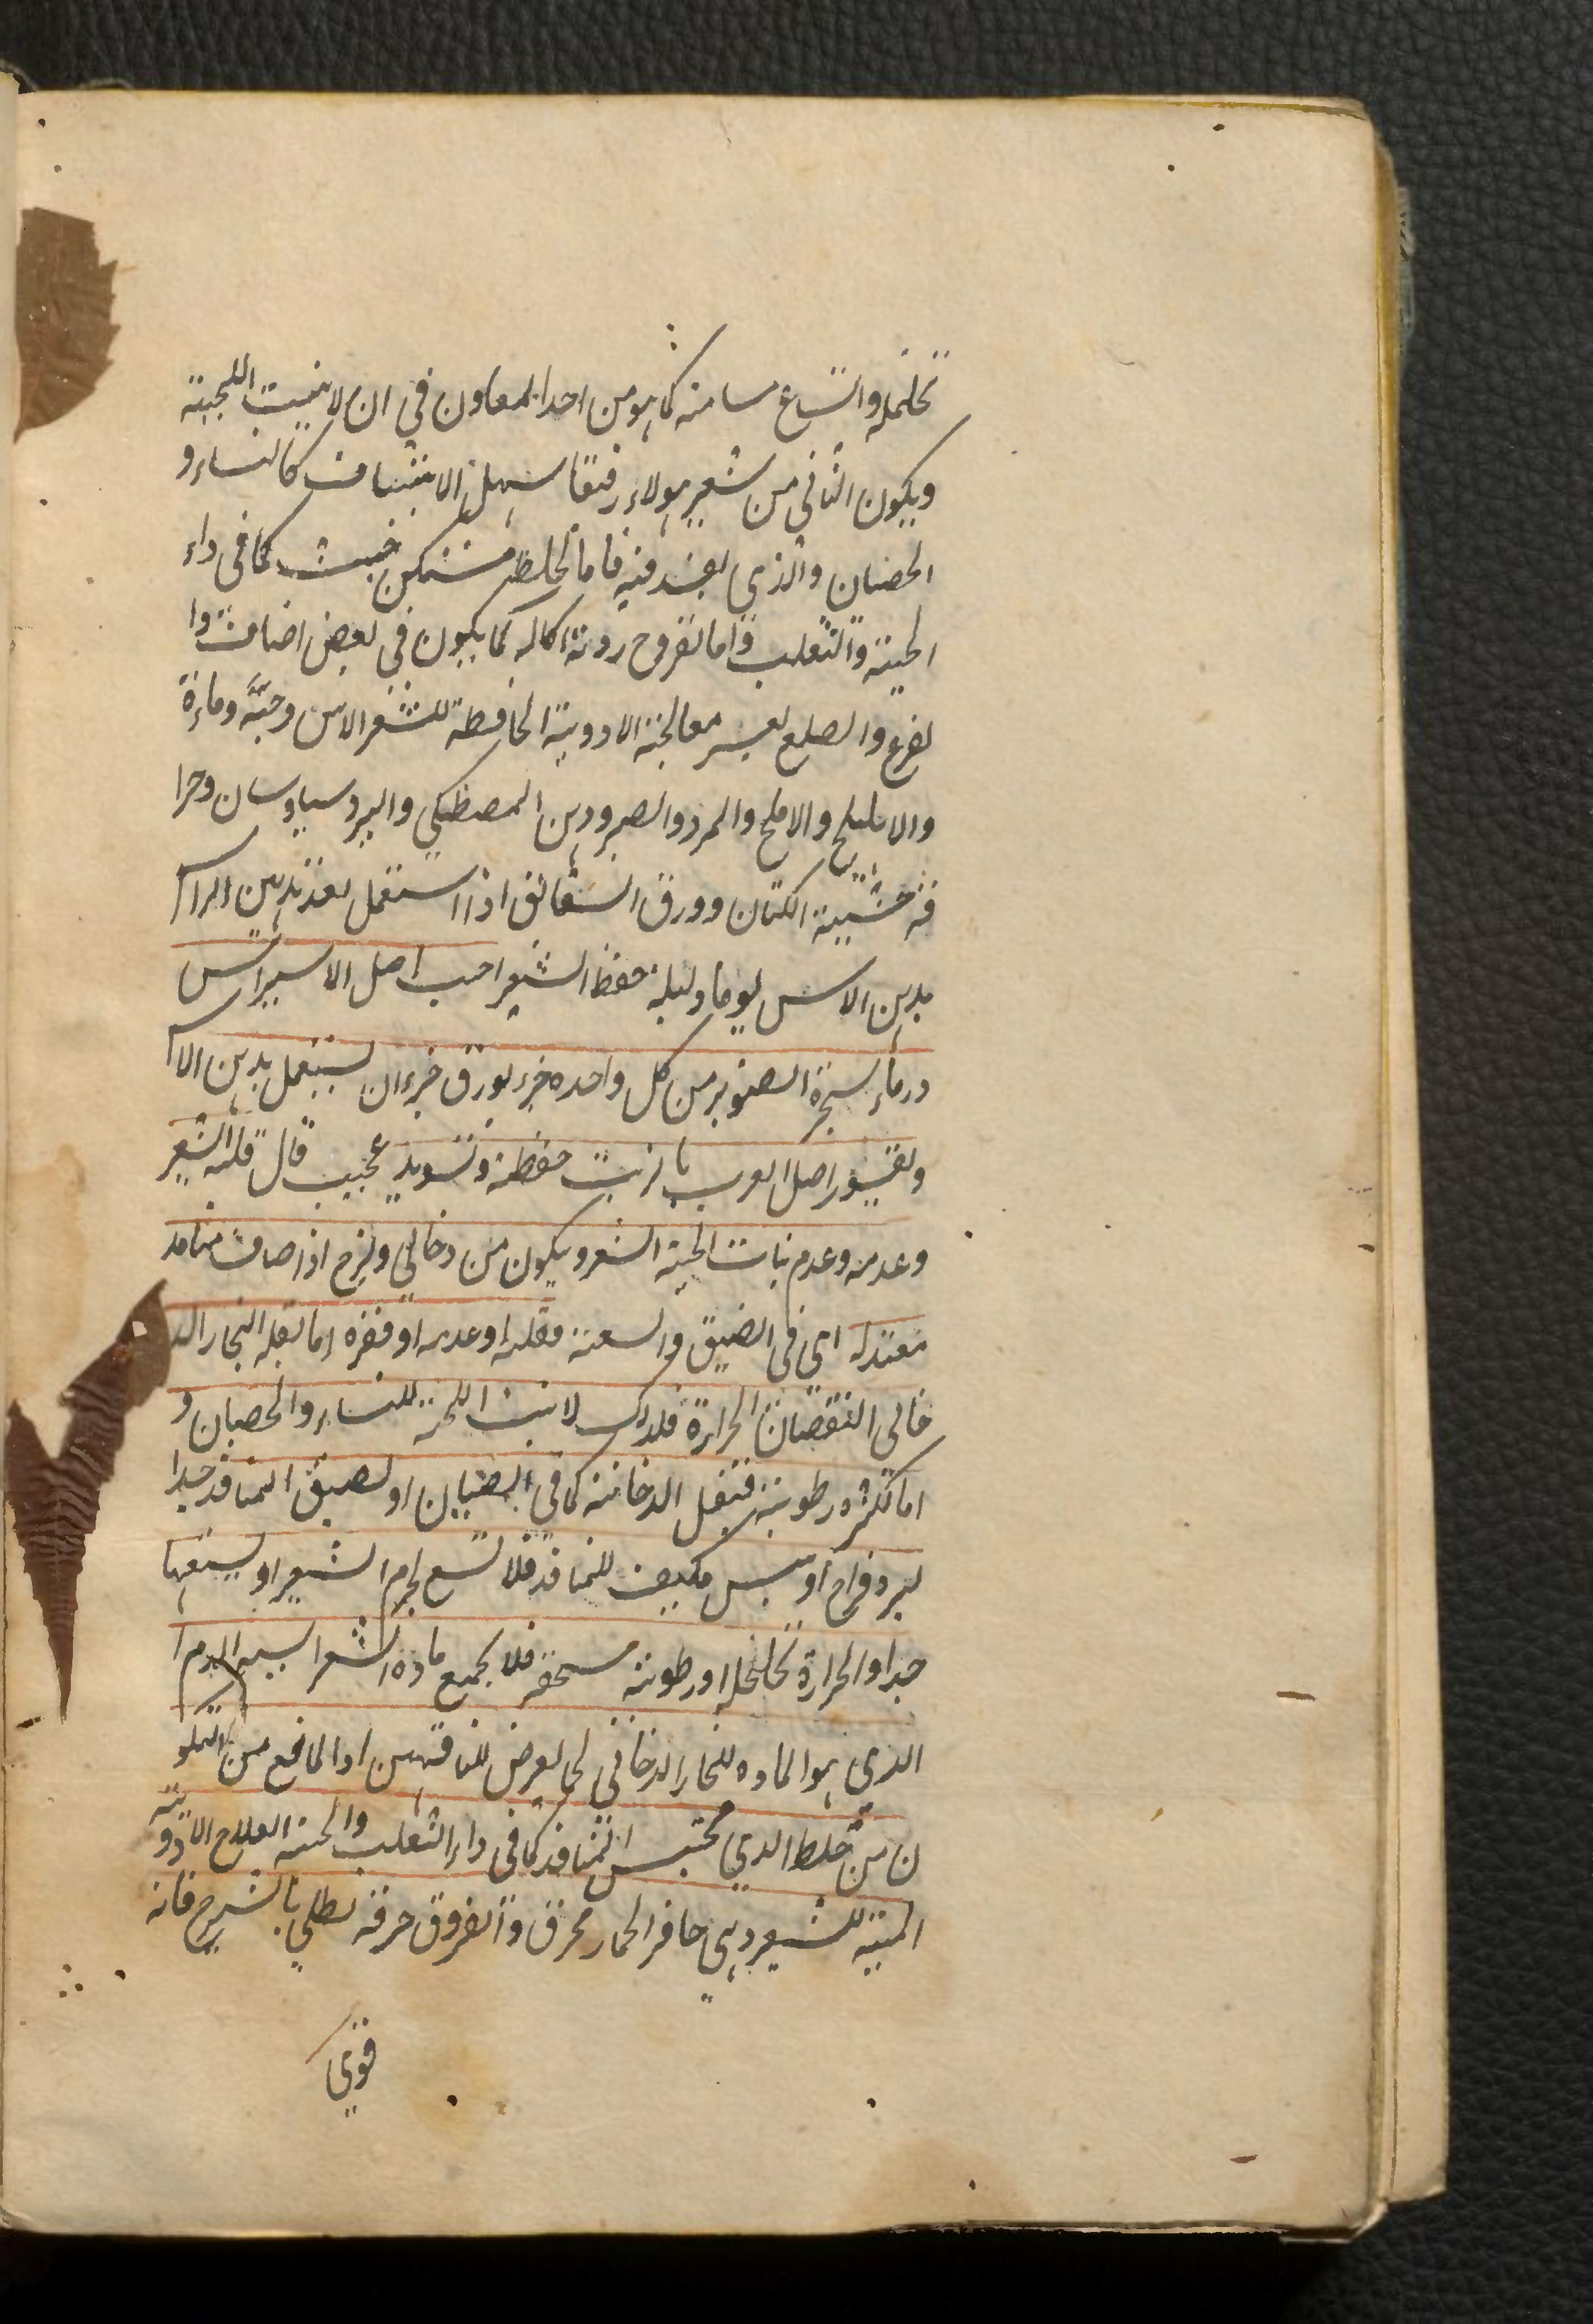 تخلخله واتساع مسامته كما هو من احدا لمعاون في ان لا ينبت اللحية
ويكون الثاني من شعر هولاء رقيقا سهل الانتتاف كالنساء و
الخصيان والذي لفسد فيه فاما لخلط مستمكن خبيث كما في داء
الحية والثعلب واما لقروح ردية اكالة كما يكون في بعض اصناف وا
لقرع والصلع لعسر معالجة الادوية الحافظة للشعر الاس وحبه وماءه
والاهليلج والاملج والمر والصبر ودهن المصطكي والبرسياوسان وحرا
قة خشيشة الكتان وورق الشقائق اذا استعمل بعد تدهين الراس
بدهن الاس يوما وليلة حفظ الشعر احب اصل الاسراس
ورماد شجرة الصنوبر من كل واحده جزء بورق جزءان يستعمل بدهن الاس
وقشور اصل الغرب بالزيت حفظه وتسويد عجيب قال قلة الشعر
وعدمه وعدم نبات الحية الشعر ويكون من دخاني ولزج اذا صادف منافذ
معتدلة اي في الضيق والسعة فقلته او عدمه او فقره اما لقلة البخار الد
خاني النقصان الحرارة فلذلك لا ينبت اللحية للنساء والخصيان و
اما لكثرة رطوبته فتقل الدخانية كما في الصبيان او لضيق المنافذ جدا
لبرد مزاج او يبس مكيف للمنافذ فلا تسع لجرم الشعر او لسعتها
جدا والحرارة تخلخله او رطوبة مسخفه فلا يجمع مادة الشعر السبب الدم ا
الذي هو المادة للبخار الدخاني لما يعرض للناقهين او المانع من التكو
ن من خلط الذي محتبس المنافذ كما في داء الثعلب والحية العلاج الادوية
المنبتة للشعر وهي حافر الحمار محرق والقروق حرقه يطلي بالشيرج فانه
قوي